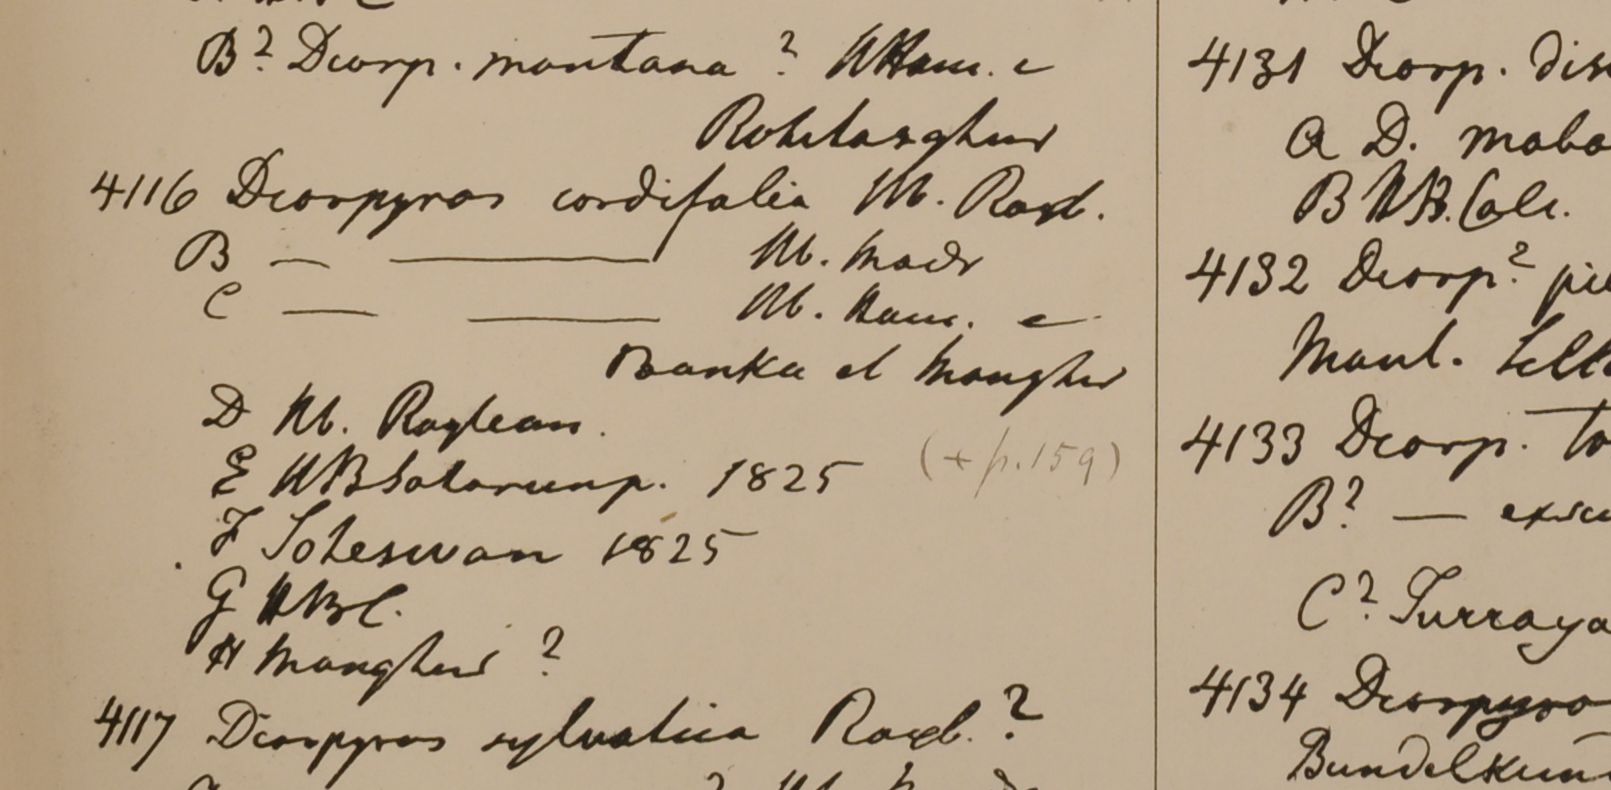 B? Diosp. montana? HHam. e
Rohtasghur
4116 Diospyros cordifolia Hb. Roxb.
B — —— Hb. Madr
C — —— Hb. Ham. e
Banka et Monghir
D Hb. Royleau.
E HB Saharunp. 1825 (+ p. 159)
F Soheswan 1825
G HBC.
H Monghir ?
4117 Diospyros sylvatica Roxb.?
4131 Diosp. dis
A D. mabo
B HB. Calc.
4132 Diosp? pil
Maul.
4133 Diosp. to
B? — exscu
C? Turraya
4134 Diospyro
Bundelkun